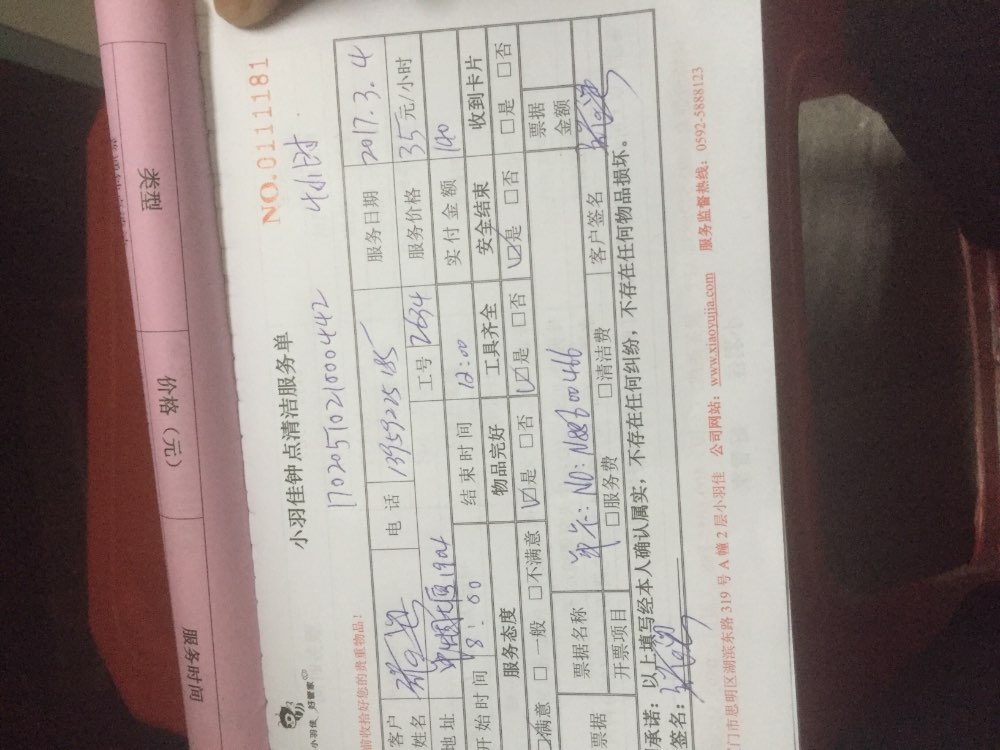 类型
价格（元）
服务时间
NO.01111181
小羽佳钟点清洁服务单
4小时
小羽佳 好管家
1702051021000442
前收拾好您的贵重物品！
客户姓名
电话 13959215185
服务日期 2017.3.4
工号 2634
服务价格 35元/小时
地址
开始时间 8:00
结束时间 12:00
实付金额 140
服务态度 物品完好 工具齐全 安全结束 收到卡片
满意 □一般 □不满意 ☑是 □否 ☑是 □否 ☑是 □否 □是 □否
票据 票据名称
票据金额
开票项目 □服务费 □清洁费
客户签名
承诺：以上填写经本人确认属实，不存在任何纠纷，不存在任何物品损坏。
签名：
门市思明区湖滨东路319号A幢2层小羽佳 公司网站：www.xiaoyujia.com 服务监督热线：0592-5888123